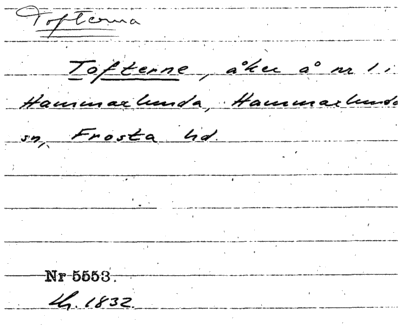 Tofterna
Tofterne, åker å nr 1 i
Hammarlunda, Hammarlunda
sn, Frosta hd.
Nr 5553.
Lh. 1832.